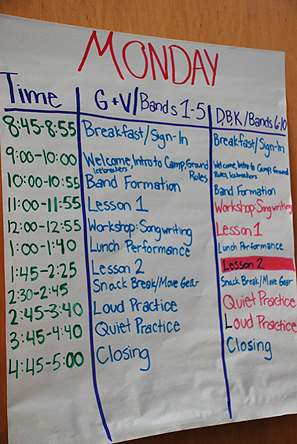 MONDAY
Time G+V/Bands 1-5 DBK/Bands 6-10
8:45-8:55 Breakfast/Sign-In Breakfast/Sign-In
9:00-10:00 Welcome, Intro to Camp, Ground Rules Icebreakers Welcome, Intro to Camp, Ground Rules, Icebreakers
10:00-10:55 Band Formation Band Formation
11:00-11:55 Lesson 1 Workshop: Songwriting
12:00-12:55 Workshop: Songwriting Lesson 1
1:00-1:40 Lunch Performance Lunch Performance
1:45-2:25 Lesson 2 Lesson 2
2:30-2:45 Snack Break/Move Gear Snack Break/Move Gear
2:45-3:40 Loud Practice Quiet Practice
3:45-4:40 Quiet Practice Loud Practice
4:45-5:00 Closing Closing